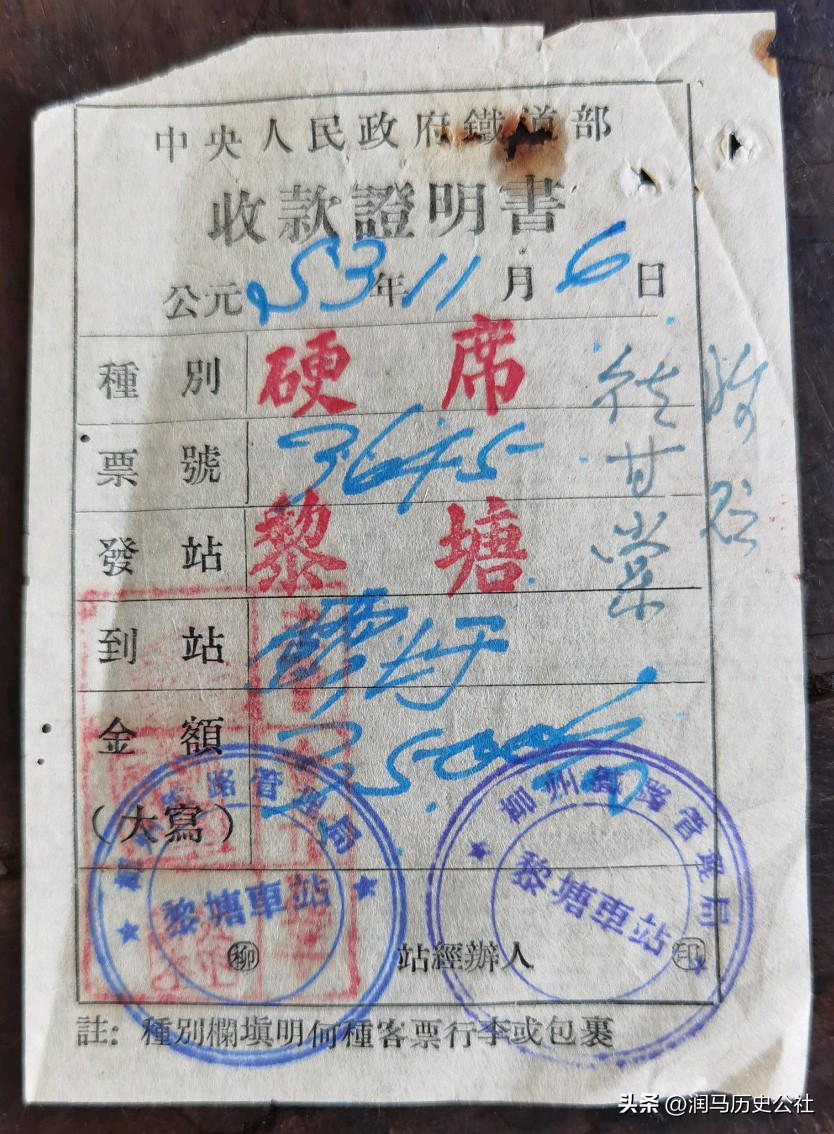 中央人民政府鐵道部
收款證明書
公元53年11月6日
種別 硬席
票號 3645
發站 黎塘
到站
金額 3500
(大寫)
黎塘車站
州鐵路管理局
黎塘車站
柳 站經辦人 印
註：種別欄填明何種客票行李或包裹
頭条 @润马历史公社